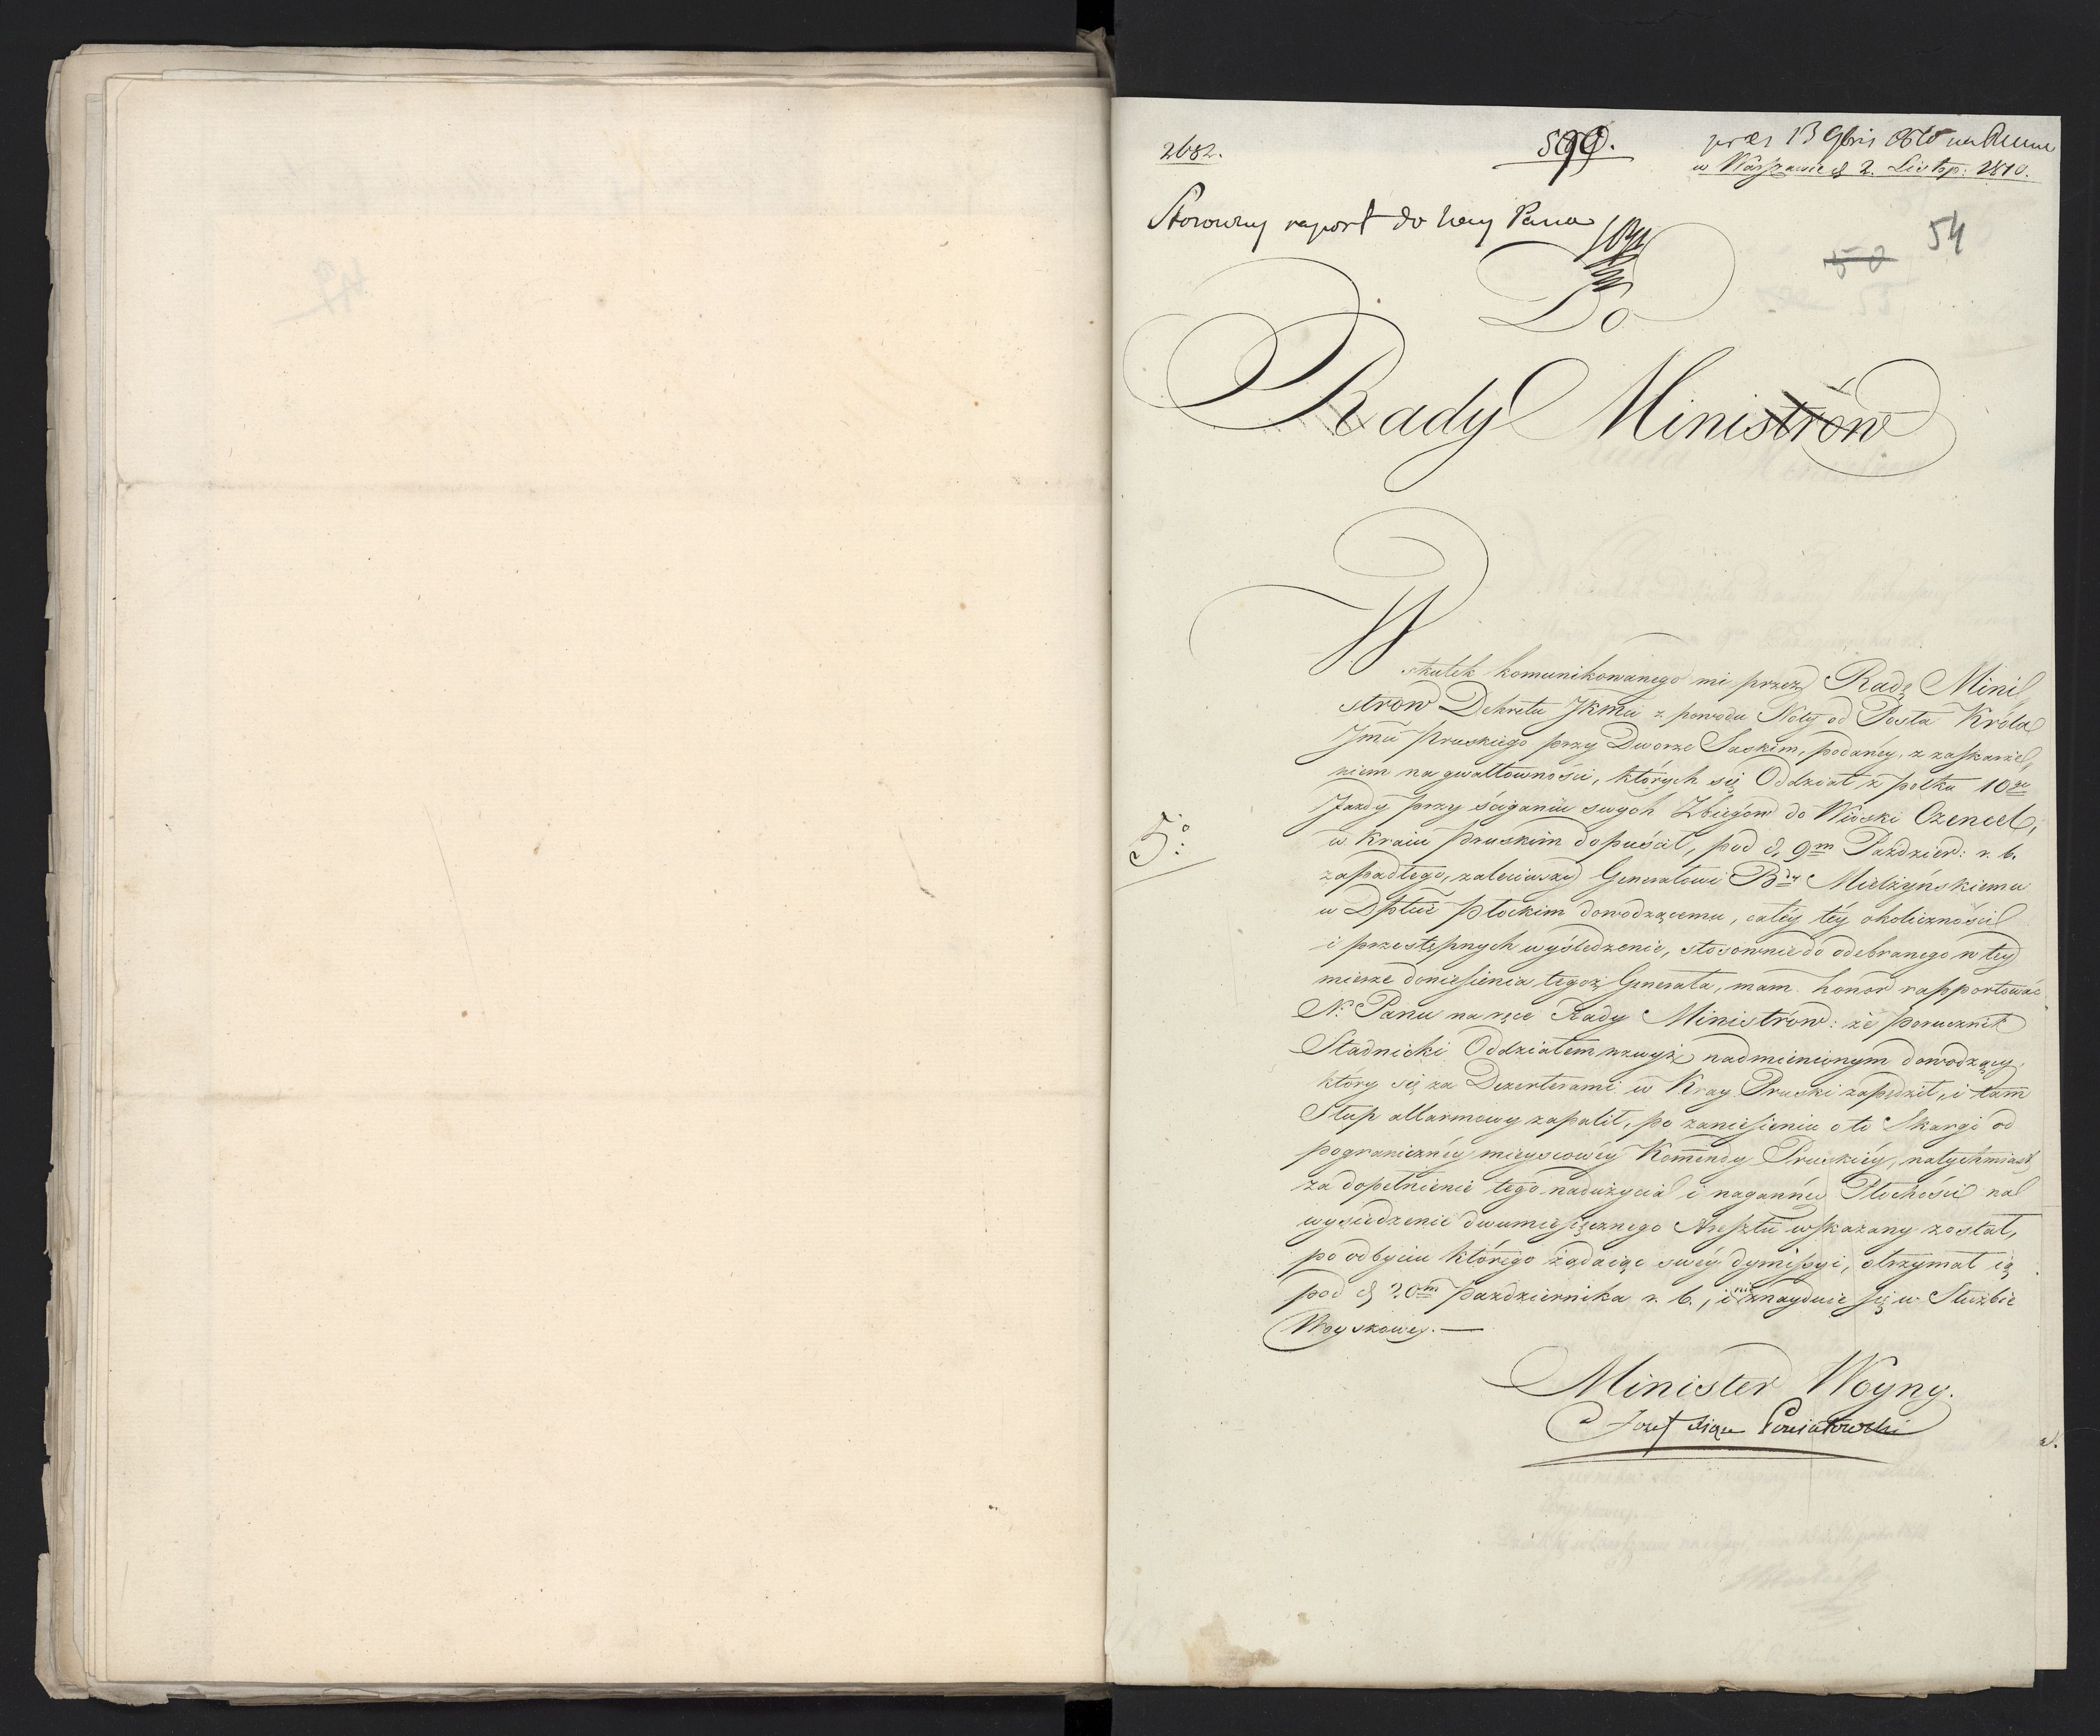 2682.
599.
w Warszawie d. 2. Listop: 1810.
Stosowny raport do Nay Pana
54
50
Do
Rady Ministrów
Wskutek komunikowanego mi przez Radę Mini
strow Dekretu JKMci z powodu Noty od Posła Króla
Jmci Pruskiego przy Dworze Saskim, podaney, z zaskarże
niem na gwałtowności, których się Oddział z połku 10go
Jazdy przy ściganiu swych Zbiegów do Wioski Czencel,
w Kraiu Pruskim dopuścił, pod d. 9m Paździer: r. b.
zapadłego, zaleciwszy Generałowi Bdy Mielżyńskiemu
w Dptcie Płockim dowodzącemu, całéy téy okoliczności
i przestępnych wyśledzenie, stosownie do odebranego w tey
mierze doniesienia tegoż Generała, mam honor rapportować
N: Panu na ręce Rady Ministrów: że Porucznik
Stadnicki Oddziałem wzwyż nadmienionym dowodzący,
który się za Dezerterami w Kray Pruski zapędził, i tam
Słup allarmowy zapalił, po zaniesieniu o to Skargi od
pograniczney mieyscowéy Komendy Pruskiéy, natychmiast
za dopełnienie tego nadużycia i nagannéy Płochości na
wysiedzenie dwumiesięcznego Aresztu wskazany został,
po odbyciu którego żądaiąc swéy dymissyi, otrzymał ią
pod d. 20m Października r. b., i nie znayduie się w Służbie
Woyskowey. —
5:
Minister Woyny.
Józef Xiąże Poniatowski